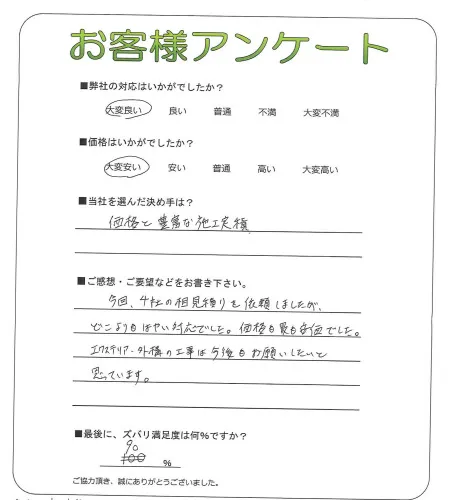 お客様アンケート
■弊社の対応はいかがでしたか?
大変良い 良い 普通 不満 大変不満
■価格はいかがでしたか?
大変安い 安い 普通 高い 大変高い
■当社を選んだ決め手は?
価格と豊富な施工実積
■ご感想・ご要望などをお書き下さい。
今回、4社の相見積りを依頼しましたが、
どこよりもはやい対応でした。価格も最も安価でした。
エクステリア・外構の工事は今後もお願いしたいと
思っています。
■最後に、ズバリ満足度は何%ですか?
90
100 %
ご協力頂き、誠にありがとうございました。